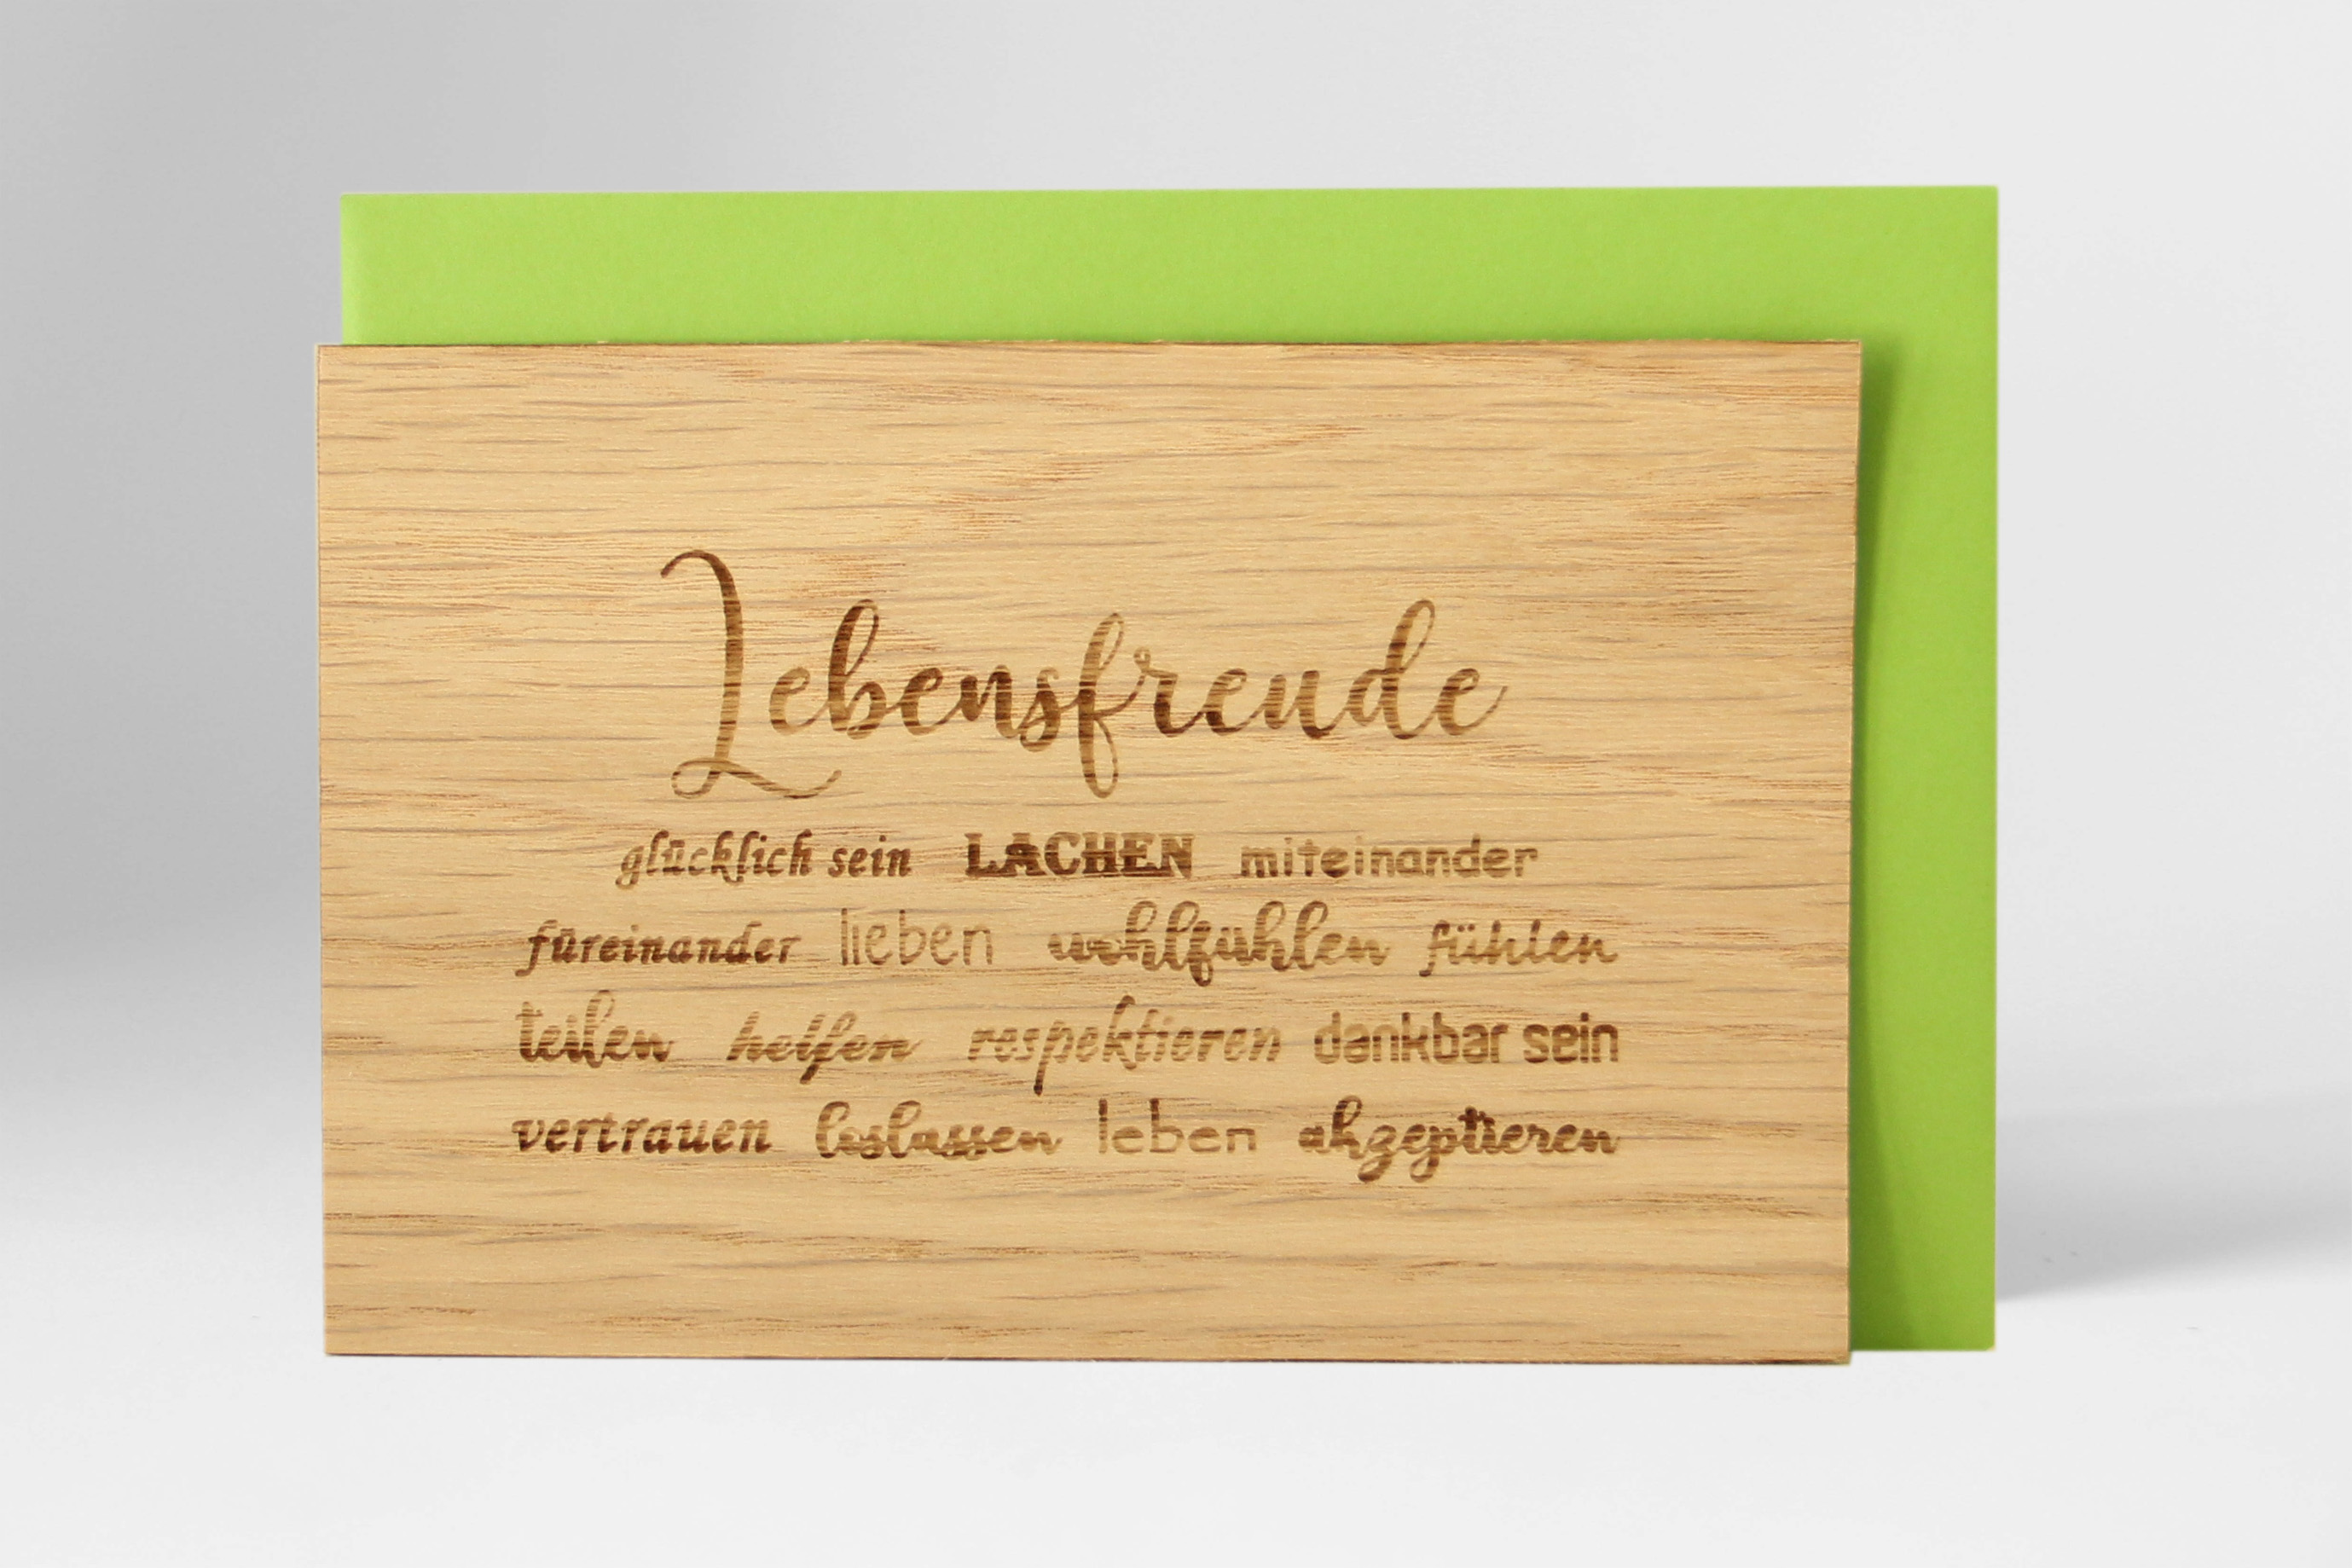 Lebensfreude
glücklich sein LACHEN miteinander
füreinander lieben wohlfühlen fühlen
teilen helfen respektieren dankbar sein
vertrauen loslassen leben akzeptieren